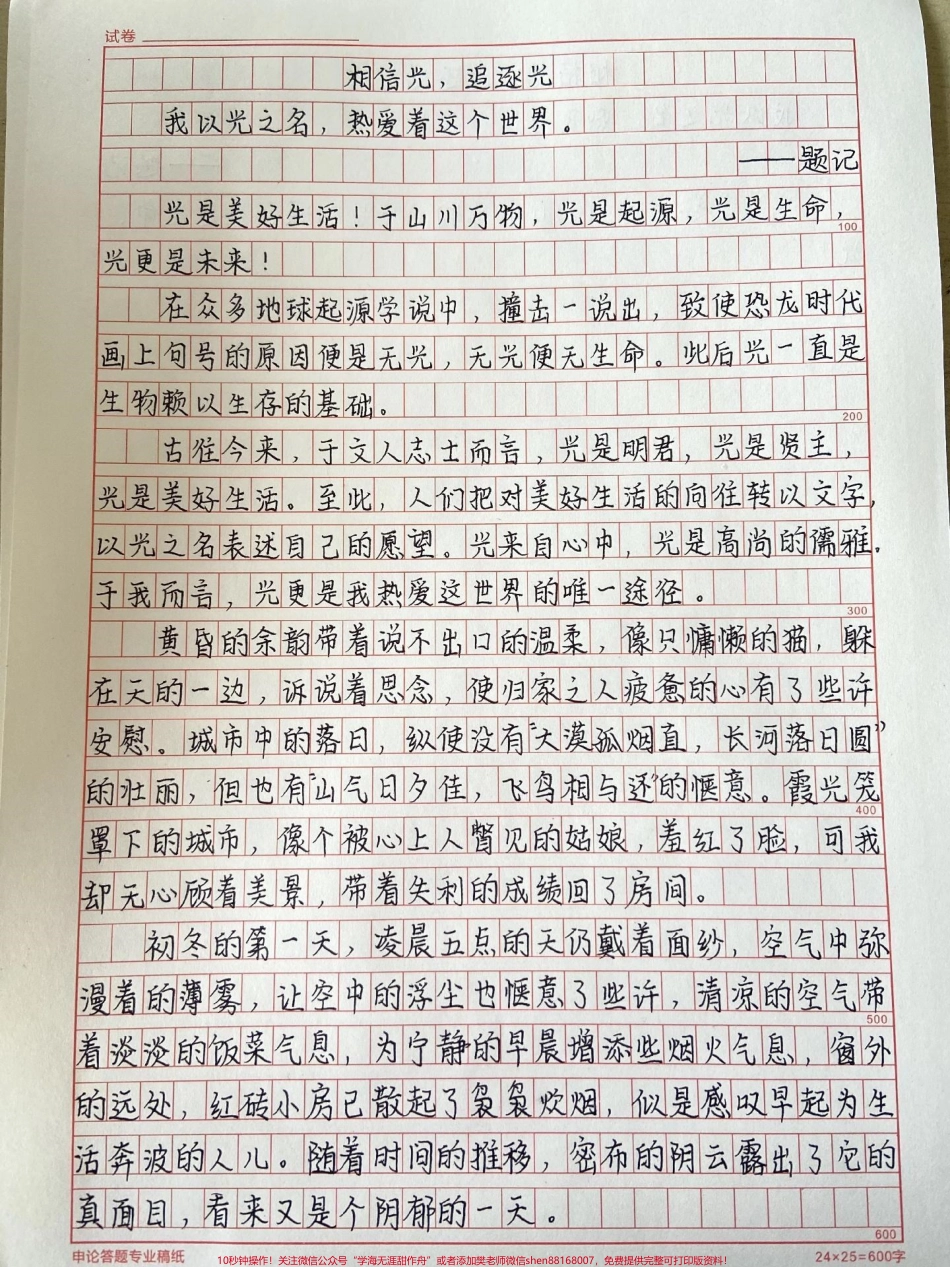 试卷
相信光，追逐光
我以光之名，热爱着这个世界。
——题记
光是美好生活！于山川万物，光是起源，光是生命，
100
光更是未来！
在众多地球起源学说中，撞击一说出，致使恐龙时代
画上句号的原因便是无光，无光便无生命。此后光一直是
生物赖以生存的基础。
200
古往今来，于文人志士而言，光是明君，光是贤主，
光是美好生活。至此，人们把对美好生活的向往转以文字，
以光之名表述自己的愿望。光来自心中，光是高尚的儒雅。
于我而言，光更是我热爱这世界的唯一途径。
300
黄昏的余韵带着说不出口的温柔，像只慵懒的猫，躲
在天的一边，诉说着思念，使归家之人疲惫的心有了些许
安慰。城市中的落日，纵使没有“大漠孤烟直，长河落日圆”
的壮丽，但也有“山气日夕佳，飞鸟相与还”的惬意。霞光笼
400
罩下的城市，像个被心上人瞥见的姑娘，羞红了脸，可我
却无心顾着美景，带着失利的成绩回了房间。
初冬的第一天，凌晨五点的天仍戴着面纱，空气中弥
漫着的薄雾，让空中的浮尘也惬意了些许，清凉的空气带
500
着淡淡的饭菜气息，为宁静的早晨增添些烟火气息，窗外
的远处，红砖小房已散起了袅袅炊烟，似是感叹早起为生
活奔波的人儿。随着时间的推移，密布的阴云露出了它的
真面目，看来又是个阴郁的一天。
600
申论答题专业稿纸
24×25=600字
10秒钟操作！关注微信公众号“学海无涯甜作舟”或者添加樊老师微信shen88168007，免费提供完整可打印版资料！